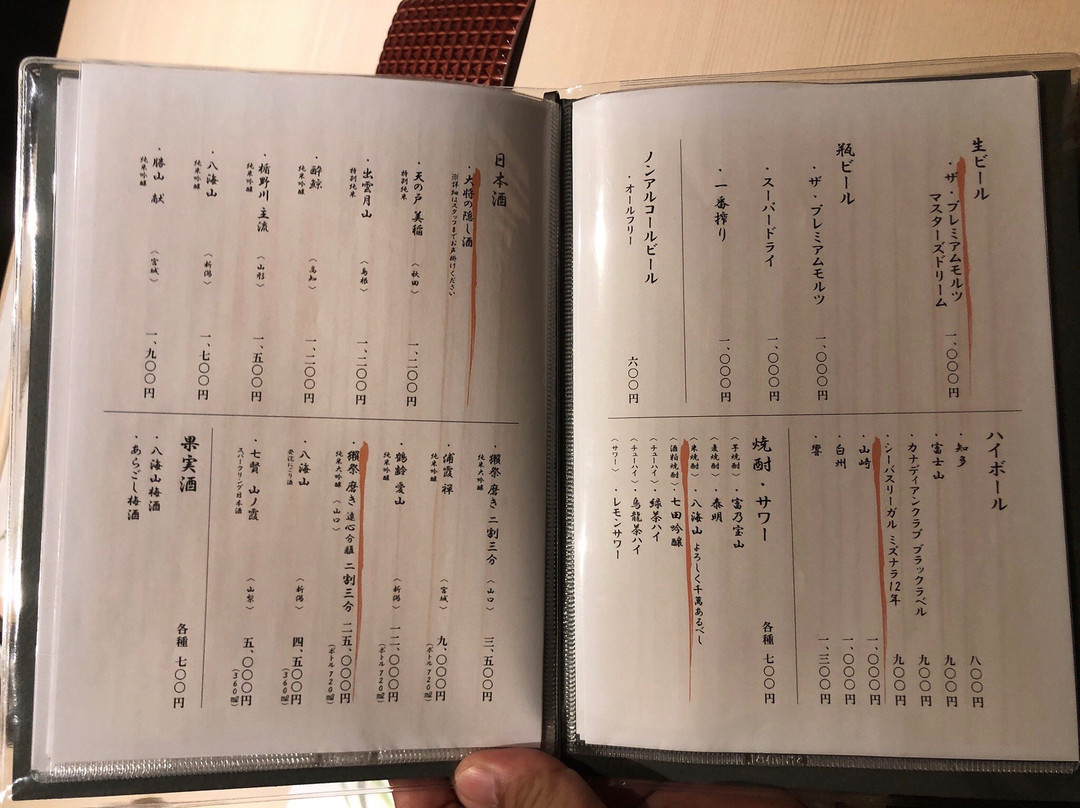 生ビール
・ザ・プレミアムモルツ
マスターズドリーム 一、〇〇〇円
瓶ビール
・ザ・プレミアムモルツ 一、〇〇〇円
・スーパードライ 一、〇〇〇円
・一番搾り 一、〇〇〇円
ノンアルコールビール
・オールフリー 六〇〇円
ハイボール
・知多 八〇〇円
・富士山 九〇〇円
・カナディアンクラブ ブラックラベル 九〇〇円
・シーバスリーガル ミズナラ12年 九〇〇円
・山崎 一、〇〇〇円
・白州 一、〇〇〇円
・響 一、三〇〇円
焼酎・サワー 各種 七〇〇円
(芋焼酎)・富乃宝山
(麦焼酎)・泰明
(米焼酎)・八海山 よろしく千萬あるべし
(酒粕焼酎)・七田吟醸
(チューハイ)・緑茶ハイ
(チューハイ)・烏龍茶ハイ
(サワー)・レモンサワー
日本酒
・大将の隠し酒
※詳細はスタッフまでお声掛けください
・天の戸 美稲 (秋田) 一、二〇〇円
特別純米
・出雲月山 (島根) 一、二〇〇円
特別純米
・酔鯨 (高知) 一、二〇〇円
純米吟醸
・楯野川 主流 (山形) 一、五〇〇円
純米吟醸
・八海山 (新潟) 一、七〇〇円
純米吟醸
・勝山 献 (宮城) 一、九〇〇円
純米吟醸
・獺祭 磨き 二割三分 (山口) 三、五〇〇円
純米大吟醸
・浦霞 禅 (宮城) 九、〇〇〇円
純米吟醸 (ボトル720㎖)
・鶴齢 愛山 (新潟) 一二、〇〇〇円
純米吟醸 (ボトル720㎖)
・獺祭 磨き 遠心分離 二割三分 二五、〇〇〇円
純米大吟醸 (山口) (ボトル720㎖)
・八海山 (新潟) 四、五〇〇円
発泡にごり酒 (360㎖)
・七賢 山ノ霞 (山梨) 五、〇〇〇円
スパークリング日本酒 (360㎖)
果実酒 各種 七〇〇円
・八海山梅酒
・あらごし梅酒